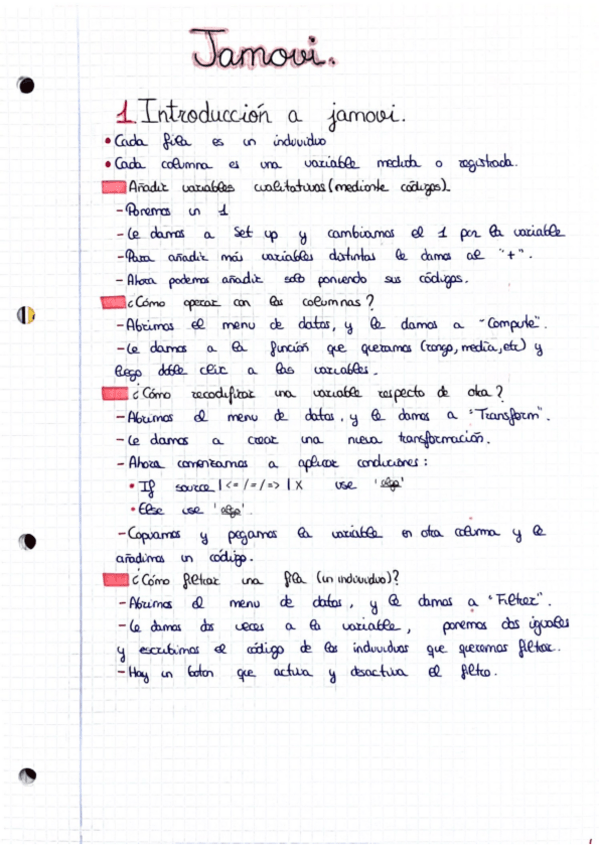 Jamovi.
1. Introducción a jamovi.
• Cada fila es un individuo
• Cada columna es una variable medida o registrada.
Añadir variables cualitativas (mediante códigos).
- Ponemos un 1
- Le damos a Set up y cambiamos el 1 por la variable
- Para añadir más variables distintas le damos al "+".
- Ahora podemos añadir solo poniendo sus códigos.
¿Cómo operar con las columnas?
- Abrimos el menu de datos, y le damos a "Compute".
- Le damos a la función que queramos (rango, media, etc) y
luego doble clic a las variables.
¿Cómo recodificar una variable respecto de otra?
- Abrimos el menu de datos, y le damos a "Transform".
- Le damos a crear una nueva transformación.
- Ahora comenzamos a aplicar condiciones:
• If source | <= / = / => | X use 'algo'
• Else use 'algo'.
- Copiamos y pegamos la variable en otra columna y le
añadimos un código.
¿Cómo filtrar una fila (un individuo)?
- Abrimos el menu de datos, y le damos a "Filter".
- Le damos dos veces a la variable, ponemos dos iguales
y escribimos el código de los individuos que queramos filtrar.
- Hay un boton que activa y desactiva el filtro.